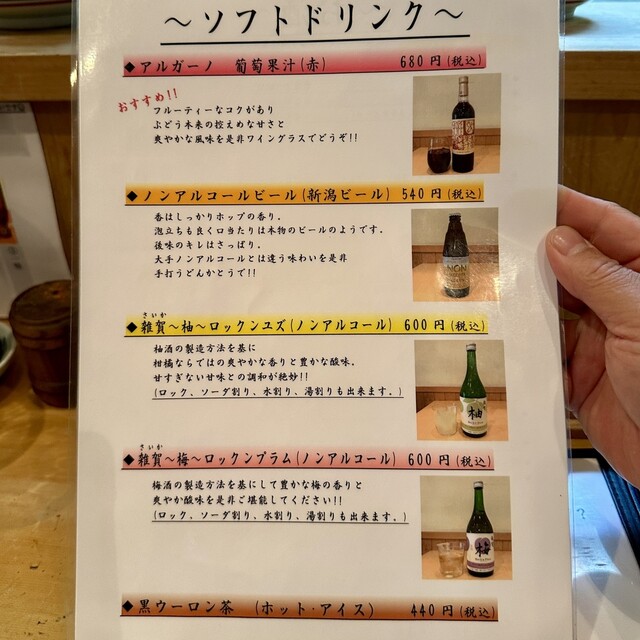 ～ソフトドリンク～
◆アルガーノ 葡萄果汁(赤) 680円(税込)
おすすめ!!
フルーティーなコクがあり
ぶどう本来の控えめな甘さと
爽やかな風味を是非ワイングラスでどうぞ!!
◆ノンアルコールビール(新潟ビール) 540円(税込)
香はしっかりホップの香り．
泡立ちも良く口当たりは本物のビールのようです。
後味のキレはさっぱり．
大手ノンアルコールとは違う味わいを是非
手打うどんかとうで!!
さいか
◆雑賀～柚～ロックンユズ(ノンアルコール) 600円(税込)
柚酒の製造方法を基に
柑橘ならではの爽やかな香りと豊かな酸味．
甘すぎない甘味との調和が絶妙!!
(ロック、ソーダ割り、水割り、湯割りも出来ます．)
柚
さいか
◆雑賀～梅～ロックンプラム(ノンアルコール) 600円(税込)
梅酒の製造方法を基にして豊かな梅の香りと
爽やか酸味を是非ご堪能してください!!
(ロック、ソーダ割り、水割り、湯割りも出来ます。)
◆黒ウーロン茶 (ホット・アイス) 440円(税込)